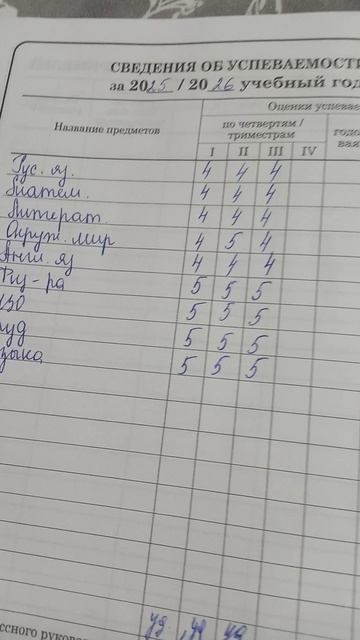 СВЕДЕНИЯ ОБ УСПЕВАЕМОСТИ
за 2025 / 2026 учебный год
Оценки успевае
Название предметов
по четвертям / триместрам
годо
вая
I II III IV
Рус. яз. 4 4 4
Матем. 4 4 4
Литерат. 4 4 4
Окруж. мир 4 5 4
Англ. яз 4 4 4
Физ-ра 5 5 5
ИЗО 5 5 5
руд 5 5 5
зыка 5 5 5
ссного руково уд. уд уд